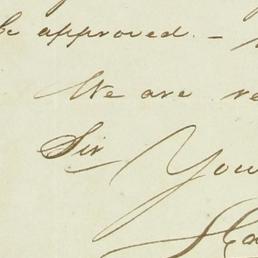 be approved. –
We are
Sir
You